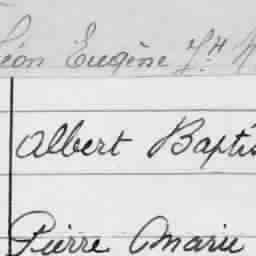 Léon Eugène
Albert Baptis
Pierre Marie